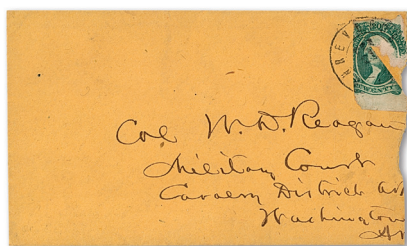 SHREV
TWENTY
Col W. D. Reagan
Military Court
Cavalry District Ark
Washington
Ar